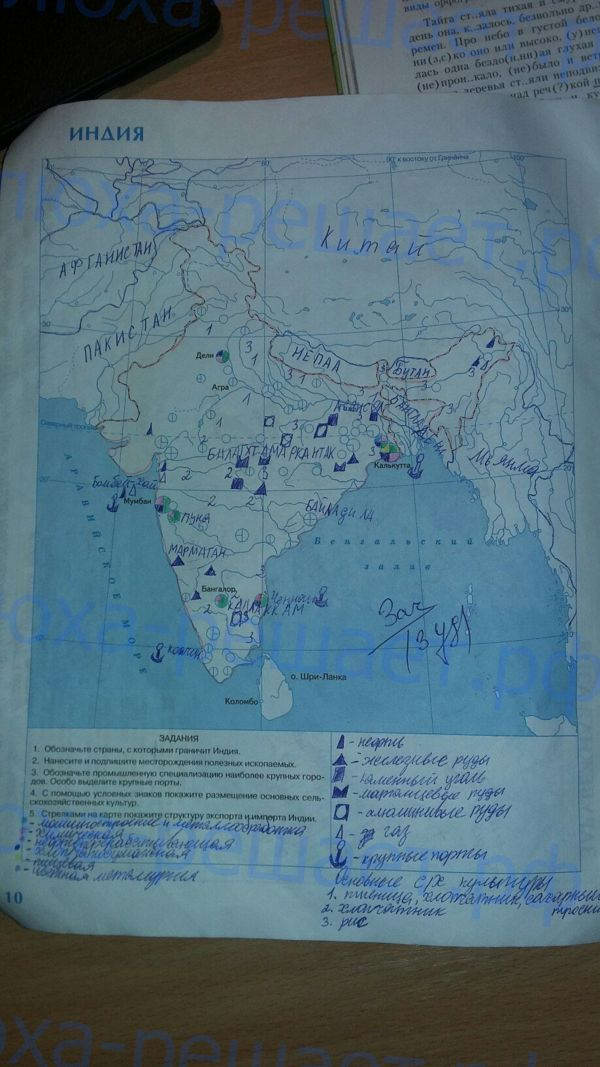 Тайга ст..яла тихая и
день она, к..залось, безвольно др..
ремен. Про небо в густой бело
ни(з,с)ко оно или высоко, (у)не
лась одна бездо(н,нн)ая глухая
(не)прон..кало, (не)было и ветр
деревья ст..яли неподвиж
над реч(?)кой
ИНДИЯ
к востоку от Гринвича
КИТАЙ
АФГАНИСТАН
ПАКИСТАН
НЕПАЛ
БУТАН
Дели
Агра
Северный тропик
БАЛАГХТ
АМАРКАНТАК
Калькутта
МЬЯНМА
Мумбаи
ПУНА
БАЙЛАДИЛА
АРАВИЙСКОЕ МОРЕ
Бенгальский
залив
МАРМАГАН
Бангалор
Зач
о. Шри-Ланка
Коломбо
ЗАДАНИЯ
1. Обозначьте страны, с которыми граничит Индия.
2. Нанесите и подпишите месторождения полезных ископаемых.
3. Обозначьте промышленную специализацию наиболее крупных горо-
дов. Особо выделите крупные порты.
4. С помощью условных знаков покажите размещение основных сель-
скохозяйственных культур.
5. Стрелками на карте покажите структуру экспорта и импорта Индии.
- машиностроение и металлообработка
- химическая
- нефтеперерабатывающая
- пищевая
- цветная металлургия
- нефть
- железные руды
- каменный уголь
- марганцевые руды
- алюминиевые руды
- газ
- крупные порты
Основные с/х культуры
1. пшеница, хлопчатник, сахарный
тростник
2. хлопчатник
3. рис
10
люха-решает.рф